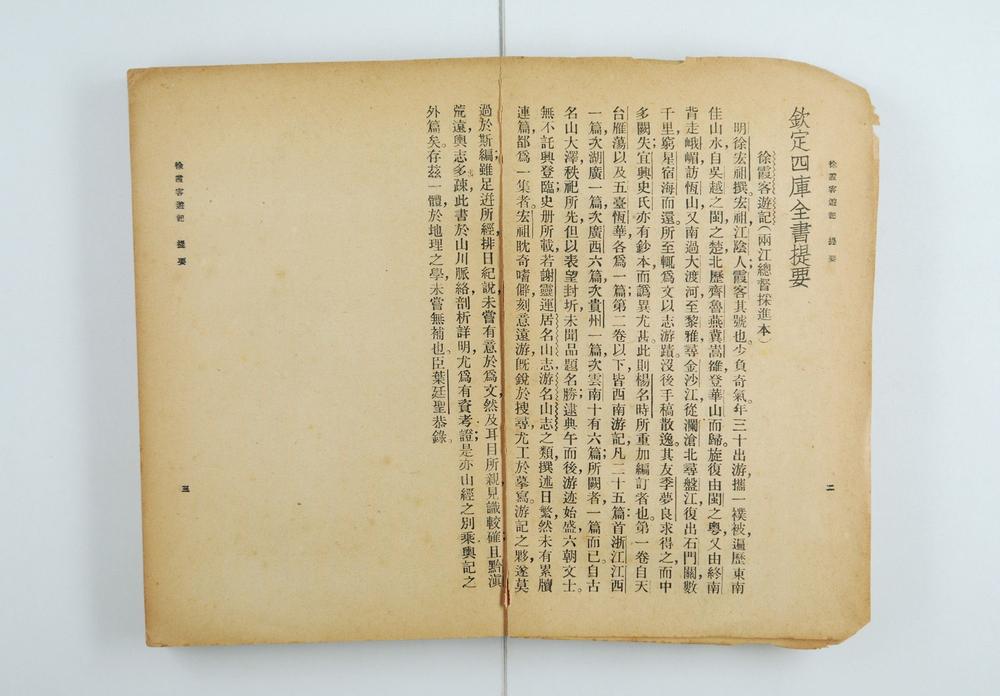 徐霞客遊記 提要
二
欽定四庫全書提要
徐霞客遊記（兩江總督採進本）
明徐宏祖撰。宏祖江陰人，霞客其號也。少負奇氣，年三十出游，攜一襆被，遍歷東南
佳山水。自吳越之閩之楚，北歷齊魯燕冀嵩雒，登華山而歸。旋復由閩之粵，又由終南
背走峨嵋，訪恆山。又南過大渡河，至黎雅尋金沙江，從瀾滄北尋盤江，復出石門關數
千里，窮星宿海而還。所至輒為文以志游蹟。沒後手稿散逸，其友季夢良求得之，而中
多闕失。宜興史氏亦有鈔本，而譌異尤甚。此則楊名時所重加編訂者也。第一卷自天
台雁蕩以及五臺恆華，各為一篇。第二卷以下，皆西南游記，凡二十五篇：首浙江江西
一篇，次湖廣一篇，次廣西六篇，次貴州一篇，次雲南十有六篇；所闕者一篇而已。自古
名山大澤，秩祀所先，但以表望封圻，未聞品題名勝；逮典午而後，游迹始盛。六朝文士，
無不託興登臨，史册所載，若謝靈運居名山志、游名山志之類，撰述日繁，然未有累牘
連篇，都為一集者。宏祖耽奇嗜僻，刻意遠游，既銳於搜尋，尤工於摹寫，游記之夥，遂莫
過於斯編。雖足迸所經，排日紀說，未嘗有意於為文，然及耳目所親，見識較確；且黔滇
荒遠，輿志多疎，此書於山川脈絡，剖析詳明，尤為有資考證；是亦山經之別乘，輿記之
外篇矣。存茲一體，於地理之學，未嘗無補也。臣葉廷聖恭錄。
徐霞客遊記 提要
三